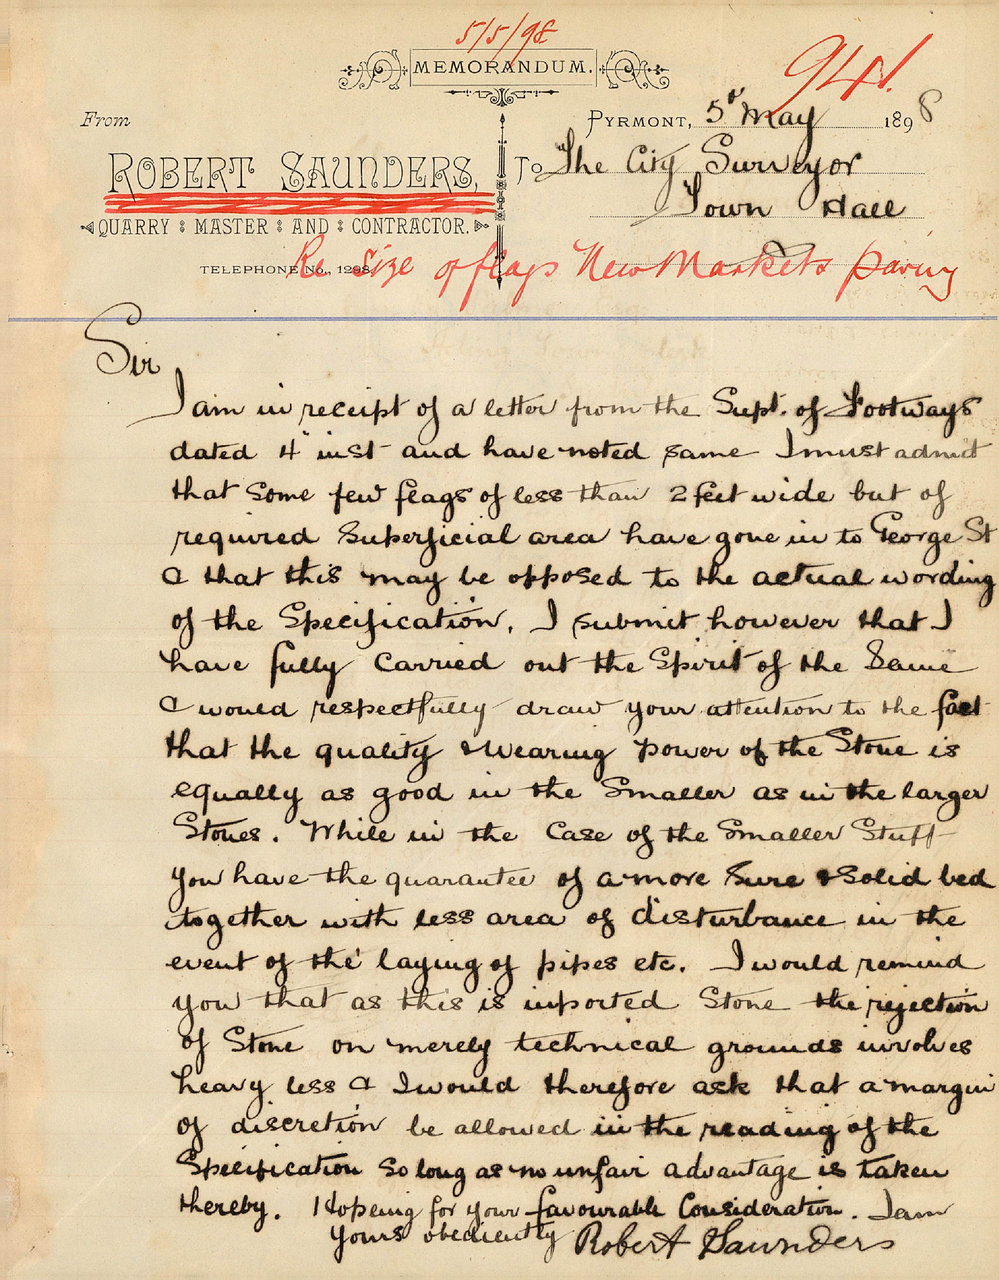 5/5/98
MEMORANDUM.
941.
From
PYRMONT, 5th May 1898
ROBERT SAUNDERS,
To The City Surveyor
Town Hall
QUARRY MASTER AND CONTRACTOR.
TELEPHONE No. 1298.
Re Size of flags New Markets paving
Sir
I am in receipt of a letter from the Supt. of Footways
dated 4th inst and have noted same I must admit
that some few flags of less than 2 feet wide but of
required Superficial area have gone in to George St
& that this may be opposed to the actual wording
of the Specification. I submit however that I
have fully Carried out the Spirit of the Same
& would respectfully draw your attention to the fact
that the quality & wearing power of the Stone is
equally as good in the Smaller as in the larger
Stones. While in the Case of the Smaller Stuff
you have the guarantee of a more Sure & Solid bed
together with less area of disturbance in the
event of the laying of pipes etc. I would remind
you that as this is imported Stone the rejection
of Stone on merely technical grounds involves
heavy loss & I would therefore ask that a margin
of discretion be allowed in the reading of the
Specification So long as no unfair advantage is taken
thereby. Hopeing for your favourable Consideration. I am
yours obediently Robert Saunders